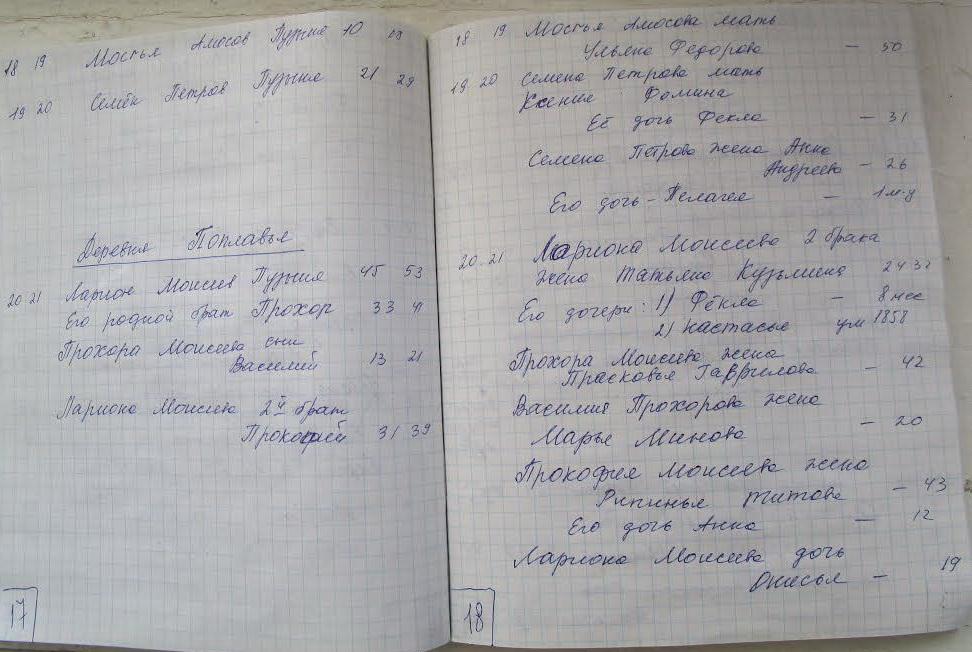 18 19 Мосья Амосов Пузыня 10 19
19 20 Семён Петров Пузыня 21 29
Деревня Поплавья
20 21 Ларион Моисеев Пузыня 45 53
Его родной брат Прохор 33 41
Прохора Моисеева сын
Василий 13 21
Лариона Моисеева 2й брат
Прокофий 31 39
17
18 19 Мосья Амосова мать
Ульяна Федорова — 50
19 20 Семена Петрова мать
Ксения Фомина
Её дочь Фекла — 31
Семена Петрова жена Анна
Андреева — 26
Его дочь - Пелагея — 1 м-ц
20. 21 Лариона Моисеева 2 брака
жена Татьяна Кузьмина 24 32
Его дочери: 1) Фёкла — 8 мес
2) Настасья ум 1858
Прохора Моисеева жена
Прасковья Гаврилова — 42
Василия Прохорова жена
Марья Минова — 20
Прокофия Моисеева жена
Рипинья Титова — 43
Его дочь Анна — 12
Лариона Моисеева дочь
Онисья — 19
18